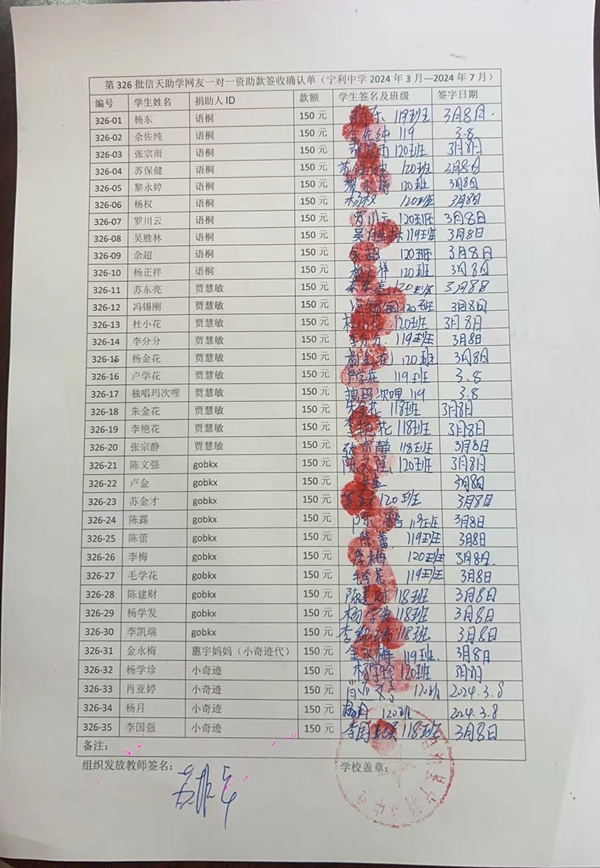 第 326 批信天助学网友一对一资助款签收确认单（宁利中学 2024 年 3 月---2024 年 7 月）
编号 学生姓名 捐助人 ID 款额 学生签名及班级 签字日期
326-01 杨东 语桐 150 元 东 119班 3月8日.
326-02 余佐纯 语桐 150 元 佐纯 119 3.8
326-03 张宗雨 语桐 150 元 120班 3月8日
326-04 苏保健 语桐 150 元 苏 120班 3月8日
326-05 黎永婷 语桐 150 元 120班 3月8日
326-06 杨权 语桐 150 元 杨权 120班 3月8日
326-07 罗川云 语桐 150 元 罗川云 120班 3月8日
326-08 吴胜林 语桐 150 元 吴胜林 119班 3月8日
326-09 余超 语桐 150 元 余超 120班 3月8日
326-10 杨正祥 语桐 150 元 祥 120班 3月8日
326-11 苏东亮 贾慧敏 150 元 120班 3月8日
326-12 冯锡刚 贾慧敏 150 元 120班 3月8日
326-13 杜小花 贾慧敏 150 元 杜小花 120班 3月8日
326-14 李分分 贾慧敏 150 元 119班 3月8日
326-15 杨金花 贾慧敏 150 元 120班 3月8日
326-16 卢学花 贾慧敏 150 元 卢学花 119班 3.8
326-17 独唱玛次哩 贾慧敏 150 元 玛次哩 119 3.8
326-18 朱金花 贾慧敏 150 元 花 118班 3月8日
326-19 李艳花 贾慧敏 150 元 李艳花 118班 3月8日
326-20 张宗静 贾慧敏 150 元 张宗静 118班 3月8日
326-21 陈文强 gobkx 150 元 陈文强 120班 3月8日
326-22 卢金 gobkx 150 元 3月8日
326-23 苏金才 gobkx 150 元 120班 3月8日
326-24 陈露 gobkx 150 元 陈露 119班 3月8日
326-25 陈蕾 gobkx 150 元 陈蕾 119班 3月8日
326-26 李梅 gobkx 150 元 李梅 120班 3月8日
326-27 毛学花 gobkx 150 元 毛学花 119班 3月8日
326-28 陈建财 gobkx 150 元 陈建财 118班 3月8日
326-29 杨学发 gobkx 150 元 杨学发 118班 3月8日
326-30 李凯瑞 gobkx 150 元 李 118班 3月8日
326-31 金永梅 蕙宇妈妈（小奇迹代） 150 元 金永梅 119班 3月8日
326-32 杨学珍 小奇迹 150 元 杨学珍 120班
326-33 肖亚婷 小奇迹 150 元 肖亚婷 120班 2024.3.8
326-34 杨月 小奇迹 150 元 杨月 120班 2024.3.8
326-35 李国强 小奇迹 150 元 李国强 118班 3月8日
备注：
组织发放教师签名： 学校盖章：